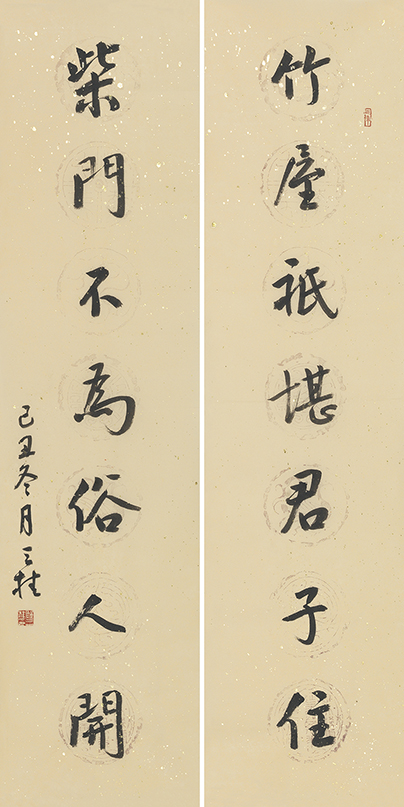 竹屋祇堪君子住
柴門不為俗人開
己丑冬月